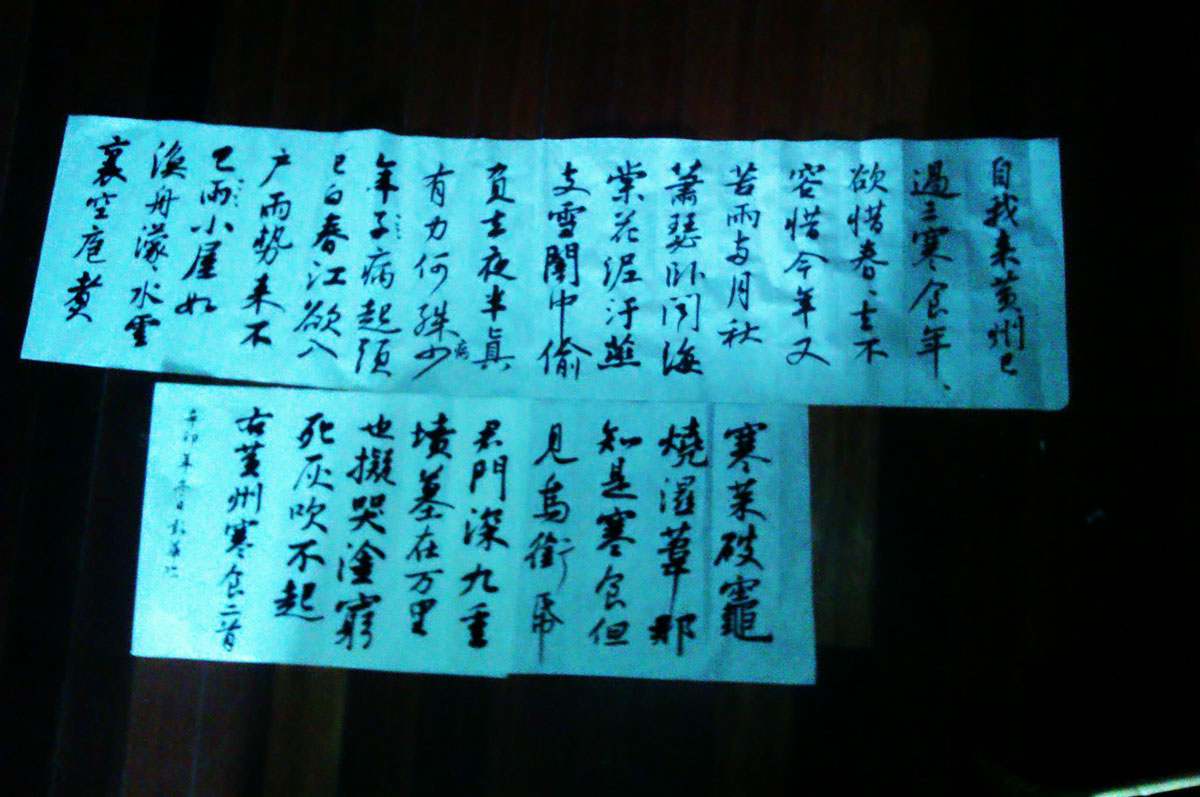 自我来黄州已
過三寒食年、
欲惜春、去不
容惜今年又
苦雨兩月秋
蕭瑟卧闻海
棠花泥汙燕
支雪闇中偷
負去夜半真
有力何殊少
病
年子病起頭
已白春江欲入
户雨勢来不
已雨小屋如
漁舟濛、水雲
裏空庖煮
寒菜破竈
燒濕葦那
知是寒食但
見烏銜帋
君門深九重
墳墓在万里
也擬哭塗窮
死灰吹不起
右黄州寒食二首
辛卯年